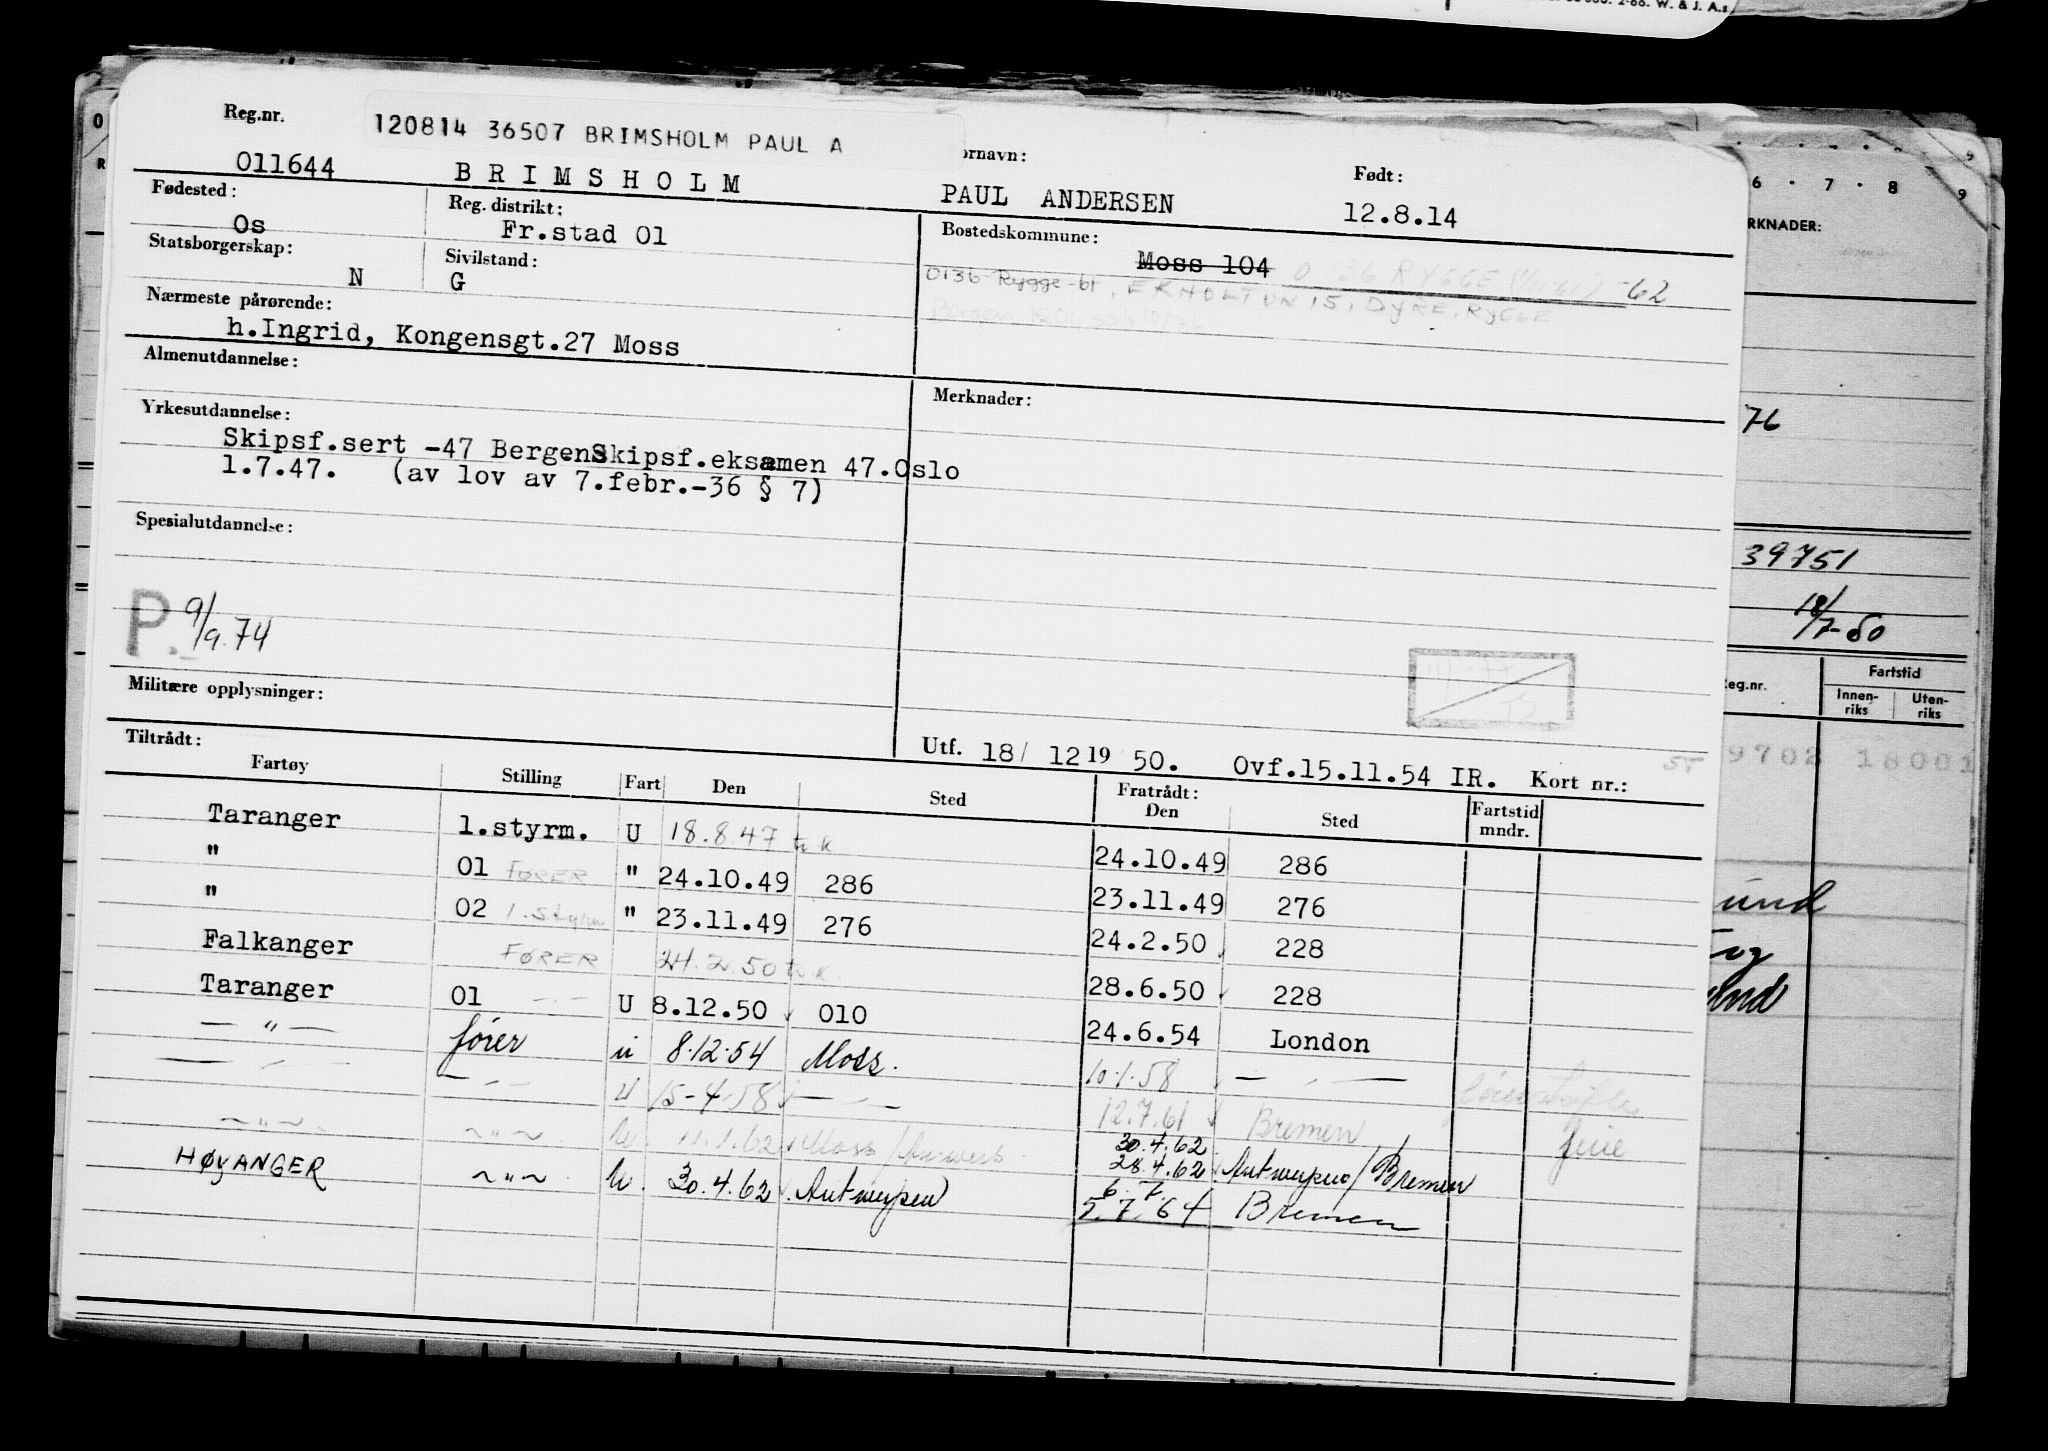 2-66. W. & J. A.s
Reg.nr.
120814 36507 BRIMSHOLM PAUL A
ornavn:
Født:
011644 BRIMSHOLM PAUL ANDERSEN 12.8.14
Fødested: Os
Reg. distrikt: Fr.stad 01
Bostedskommune: Moss 104
0136 RYGGE -62
0136 Rygge-61, ERHOLTUN 15, DYRE, RYGGE
Statsborgerskap: N
Sivilstand: G
Nærmeste pårørende:
h.Ingrid, Kongensgt.27 Moss
Almenutdannelse:
Merknader:
Yrkesutdannelse:
Skipsf.sert -47 Bergen Skipsf.eksamen 47.Oslo
1.7.47. (av lov av 7.febr.-36 § 7)
Spesialutdannelse:
P. 9/9.74
Militære opplysninger:
Utf. 18/ 12 19 50. Ovf.15.11.54 IR. Kort nr.:
Tiltrådt:
Fartøy Stilling Fart Den Sted Fratrådt: Den Sted Fartstid mndr.
Taranger 1.styrm. U 18.8.47 24.10.49 286
" 01 FØRER " 24.10.49 286 23.11.49 276
" 02 1.styrm " 23.11.49 276 24.2.50 228
Falkanger FØRER 24.2.50 28.6.50 228
Taranger 01 U 8.12.50 010 24.6.54 London
— " — fører u 8.12.54 Moss. 10.1.58 — " —
— " — — " — u 15-4-58 — " — 12.7.61 Bremen ferie
— " — — " — u. 62 Moss / 30.4.62
28.4.62 Antwerpen/Bremen
HØYANGER — " — u. 30.4.62 Antwerpen 6.7.
5.7.64 Bremen
6 . 7 . 8
9
RKNADER:
76
39751
18/7-50
Reg.nr.
Fartstid
Innen-riks Uten-riks
9702 18001
und
og
und